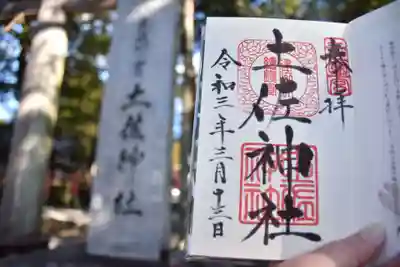 奉拝
土佐神社
令和三年三月十三日
土佐神社